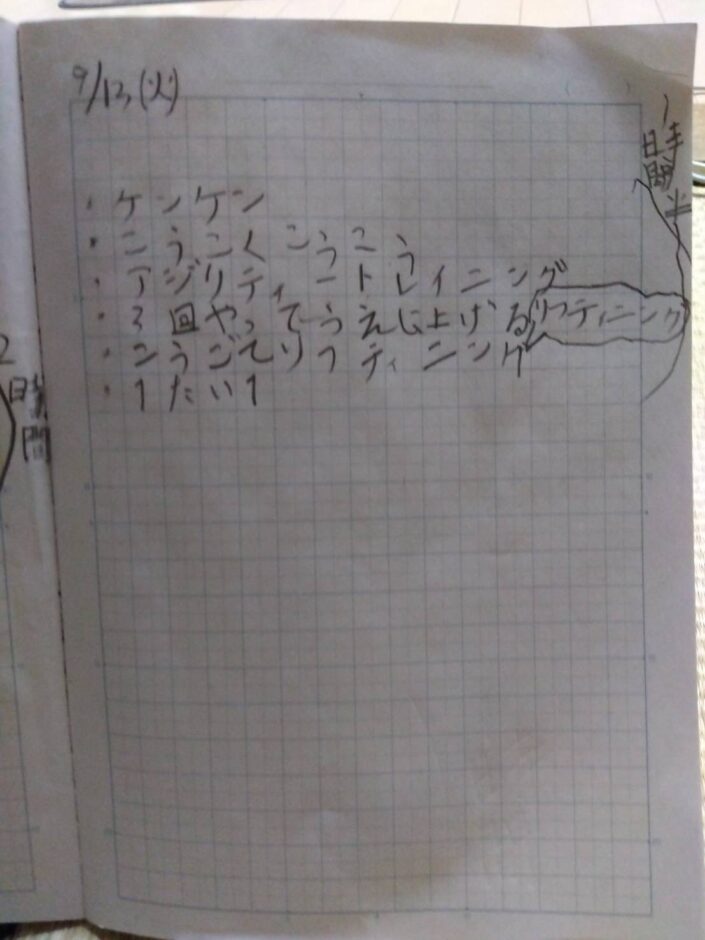 9/12(火)
・ケンケン
・こうごくこうこう
・アジリティートレイニング
・3回やってうえに上げる リフティニング
・こうごてリフティニング
・1たい1
1時間半
時間